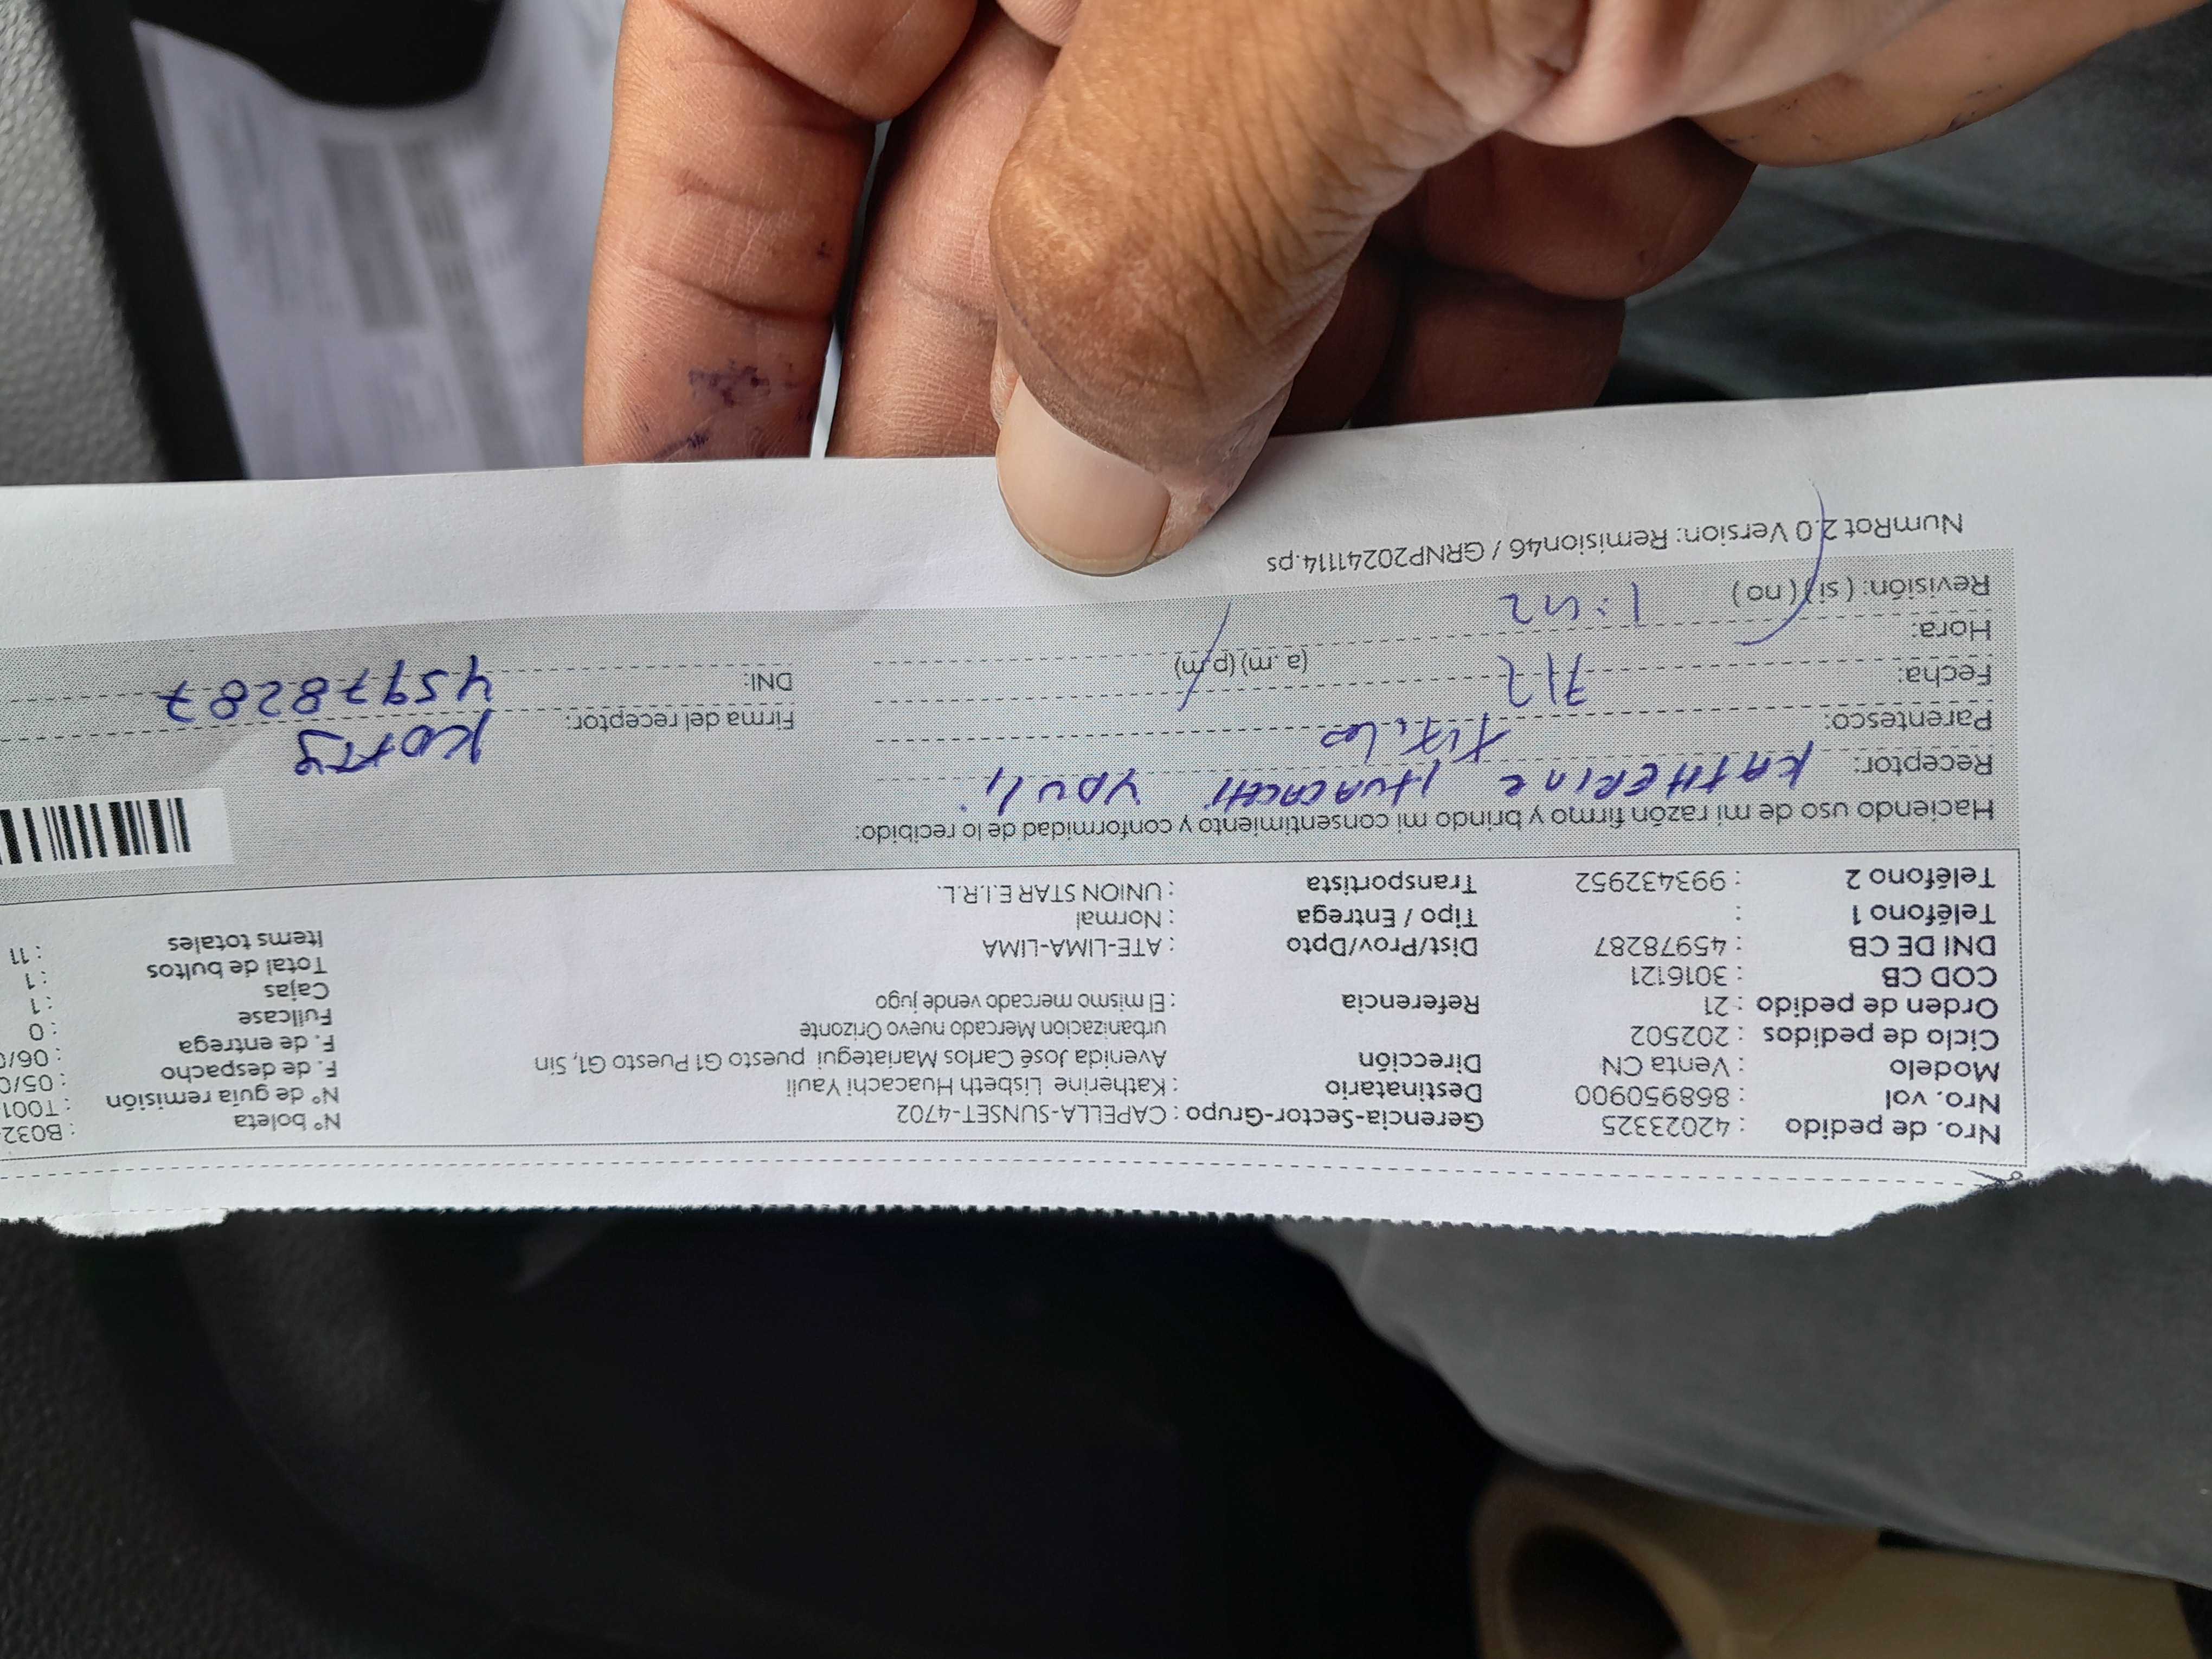 Nro. de pedido : 42023325 Gerencia-Sector-Grupo : CAPELLA-SUNSET-4702 N° boleta : B032
Nro. vol : 868950900 Destinatario : Katherine Lisbeth Huacachi Yauli N° de guía remisión : T001
Modelo : Venta CN Dirección Avenida José Carlos Mariategui puesto G1 Puesto G1, Sin F. de despacho : 05/0
Ciclo de pedidos : 202502 urbanizacion Mercado nuevo Orizonte F. de entrega : 06/0
Orden de pedido : 21 Referencia : El mismo mercado vende jugo Fullcase : 0
COD CB : 3016121 Cajas : 1
DNI DE CB : 45978287 Dist/Prov/Dpto : ATE-LIMA-LIMA Total de bultos : 1
Teléfono 1 : Tipo / Entrega : Normal Items totales : 11
Teléfono 2 : 993432952 Transportista : UNION STAR E.I.R.L.
Haciendo uso de mi razón firmo y brindo mi consentimiento y conformidad de lo recibido:
Receptor: KATHERINE HUACACHI YAULI
Parentesco: Firma del receptor: Katty
Fecha: 7/2 DNI: 45978287
Hora: 1:42 (a.m) (p.m)
Revisión: ( si ) ( no )
NumRot 2.0 Version: Remision46 / GRNP20241114.ps